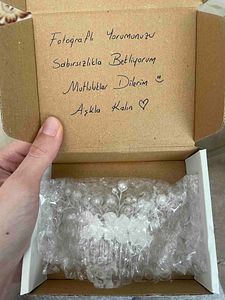 Fotoğraflı Yorumunuzu
Sabırsızlıkla Bekliyorum
Mutluluklar Dilerim
Aşkla Kalın